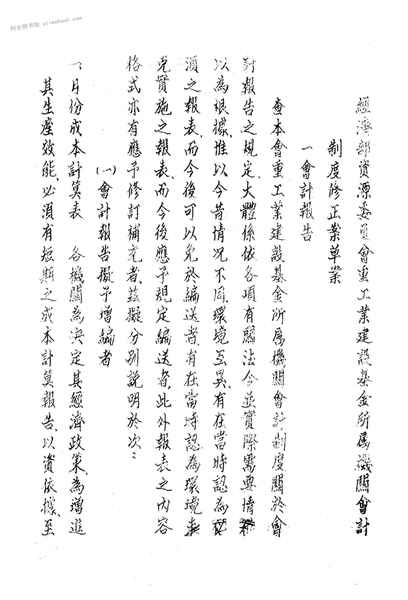 經濟部資源委員會重工業建設基金所屬機關會計
制度修正業草業
一會計報告
查本會重工業建設基金所屬機關會計制度關於會
計報告之規定大體係依各項有關法令並實際需要情
以為根據惟以今昔情況不同環境互異有在當時認為
須之報表而今後可以免於編送者有在當時認為環境
克實施之報表而今後應予規定編送者此外報表之內容
格式亦有應予修訂補充者茲擬分別說明於次：
(一)會計報告擬予增編者
一、月份成本計算表 各機關為決定其經濟政策為增進
其生產效能必須有短期之成本計算報告以資依據至